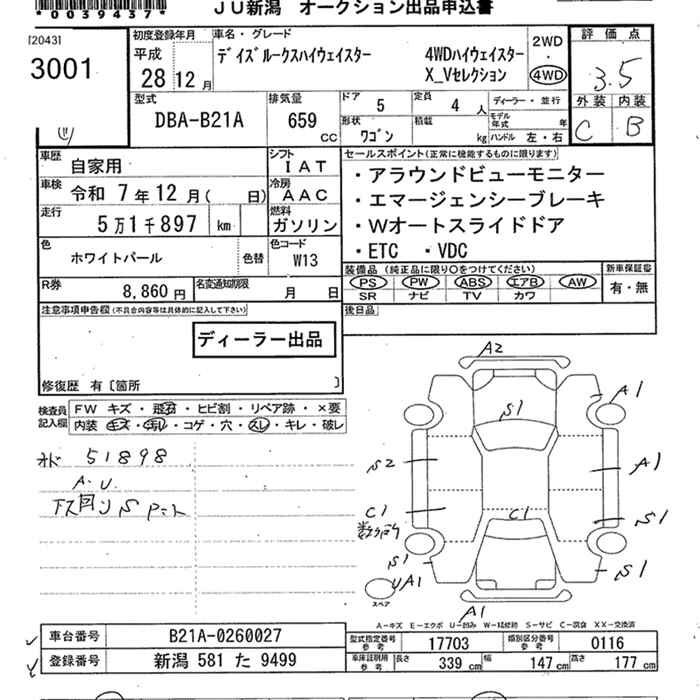 *0039437*
JU新潟 オークション出品申込書
[2043]
3001
初度登録年月
平成
28 12月
車名・グレード
デイズルークスハイウェイスター
4WDハイウェイスター
X_Vセレクション
2WD
・
4WD
評価点
3.5
外装 内装
C B
型式
DBA-B21A
排気量
659
CC
ドア 5
定員 4 人
ディーラー・並行
形状 ワゴン
積載 kg
モデル年式 年
ハンドル 左・右
車歴 自家用
シフト IAT
車検 令和 7年12月( 日)
冷房 AAC
走行 5万1千897 km
燃料 ガソリン
色 ホワイトパール 色替
色コード W13
R券 8,860円
名変通知期限 月 日
セールスポイント(正常に機能するものに限ります)
・アラウンドビューモニター
・エマージェンシーブレーキ
・Wオートスライドドア
・ETC ・VDC
装備品(純正品に限り○をつけてください)
PS PW ABS エアB AW
SR ナビ TV カワ
新車保証書
有・無
注意事項申告欄(不具合内容等は具体的に記入して下さい)
ディーラー出品
後日品
修復歴 有〔箇所 〕
検査員記入欄
FW キズ・飛石・ヒビ割・リペア跡・×要
内装 キズ・汚れ・コゲ・穴・スレ・キレ・破レ
51898
A.U.
下ス回りS
A2
S1
A1
S2
A1
C1
数ヶ所
C1
S1
S1
S1
UA1
スペア
A1
A-キズ E-エクボ U-凹み W-補修跡 S-サビ C-腐食 XX-交換済
車台番号 B21A-0260027
登録番号 新潟 581 た 9499
型式指定番号 参考 17703
類別区分番号 参考 0116
車庫証明用 参考 長さ 339 cm 幅 147 cm 高さ 177 cm